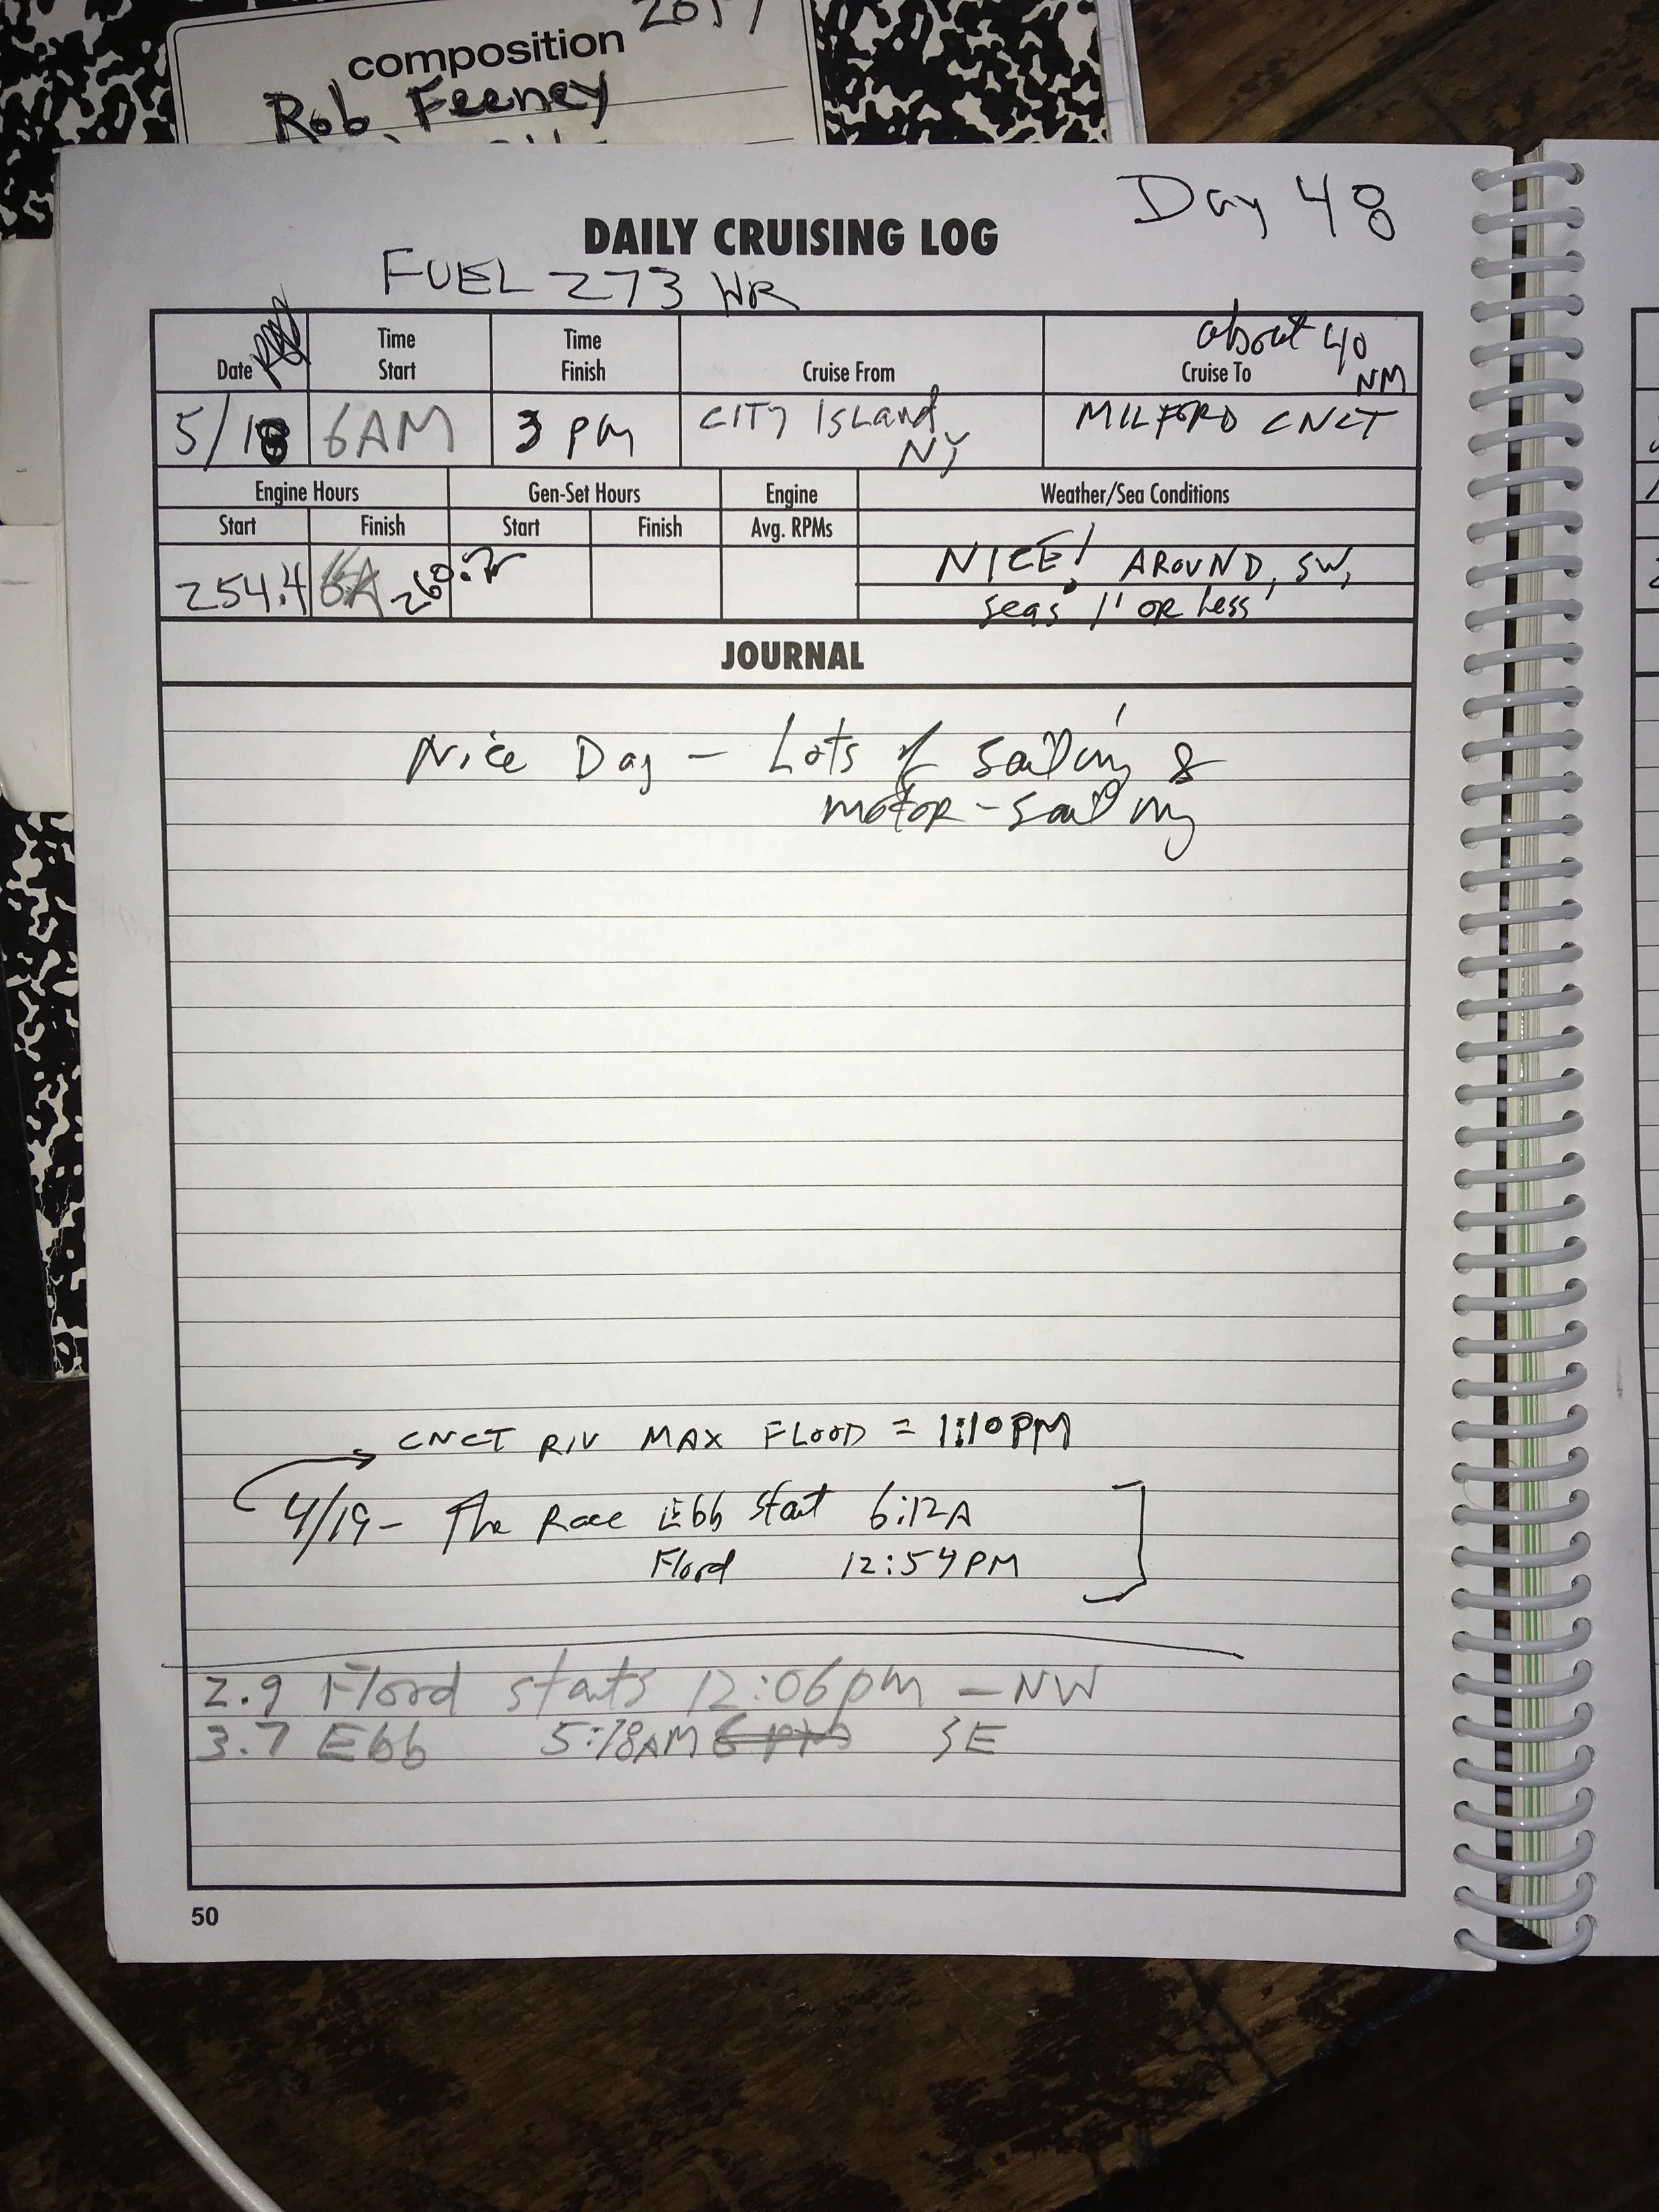 composition
Rob Feeney
Day 48
DAILY CRUISING LOG
FUEL 273 HR
Date
Time Start
Time Finish
Cruise From
about 40 NM
Cruise To
5/18
6AM
3 PM
CITY ISLand, NY
MILFORD CNCT
Engine Hours
Gen-Set Hours
Engine
Weather/Sea Conditions
Start
Finish
Start
Finish
Avg. RPMs
254.4
NICE! AROUND, SW,
seas 1' OR Less
JOURNAL
Nice Day - Lots of sailing &
motor-sailing
CNCT RIV MAX FLOOD = 1:10PM
4/19 - The Race Ebb start 6:12A
Flood 12:54PM
2.9 Flood starts 12:06pm - NW
3.7 Ebb 5:18AM SE
50